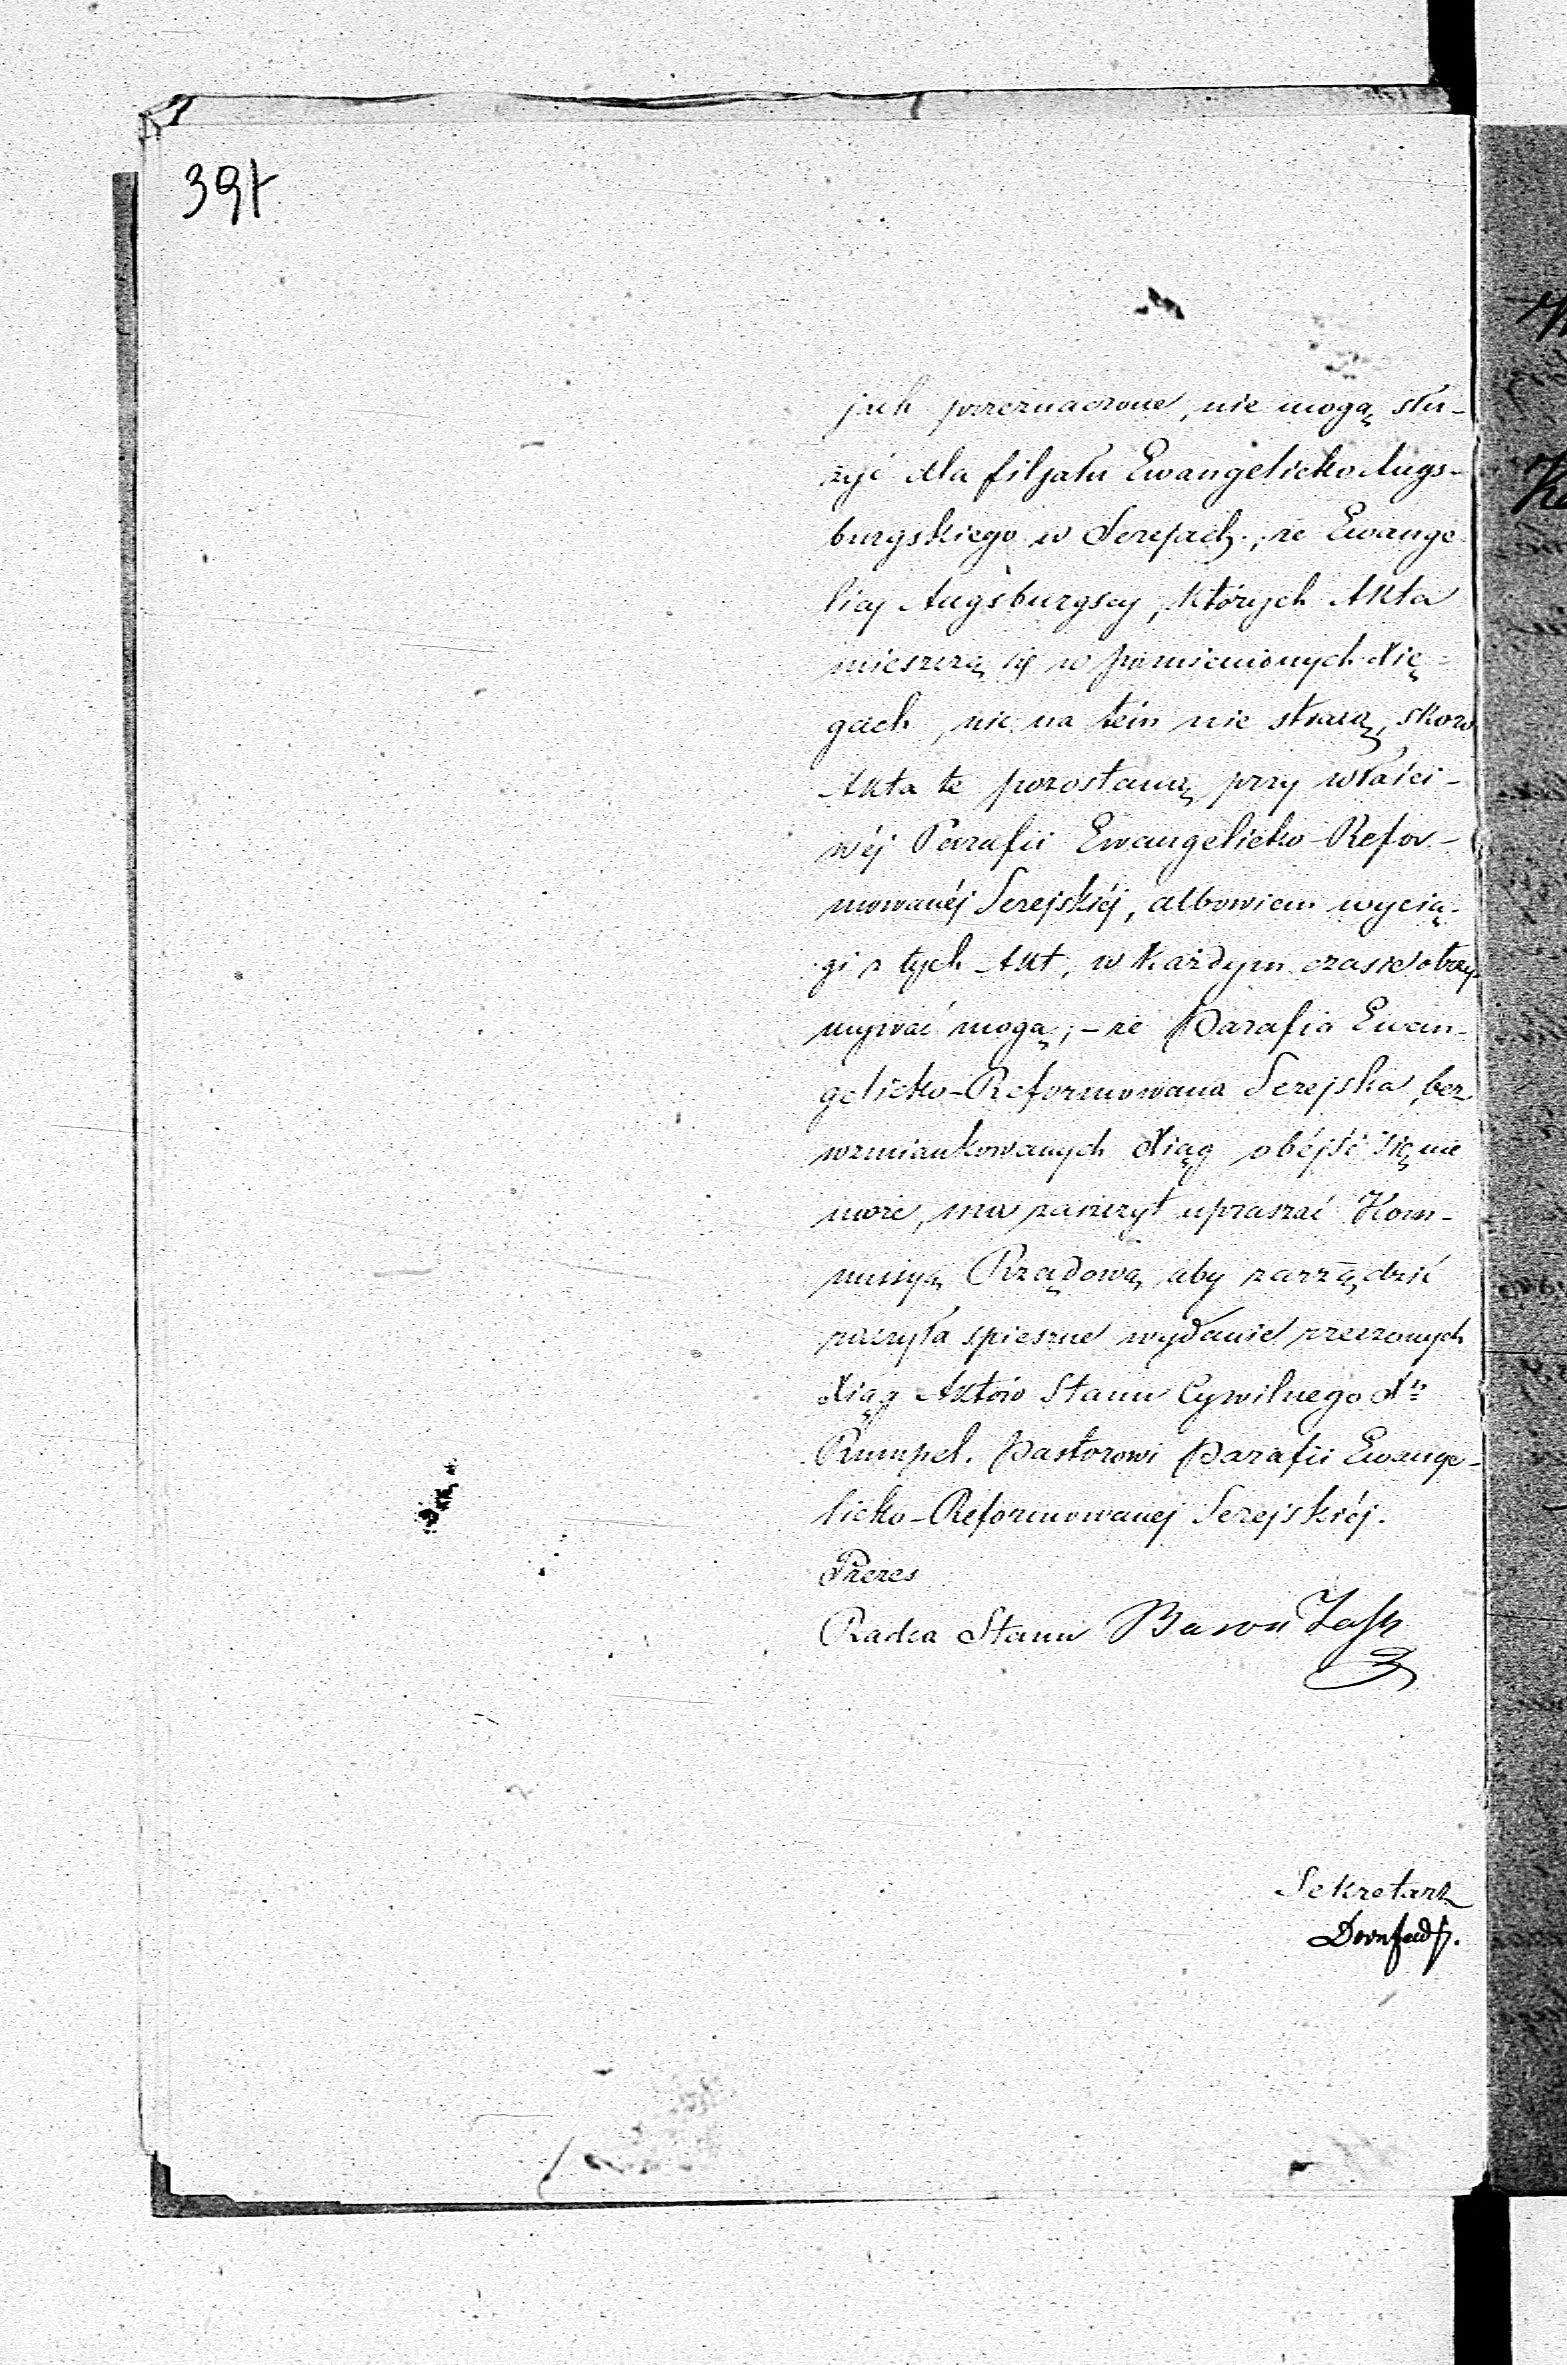 391
jach przeznaczone, nie mogą słu-
żyć dla filjału Ewangelicko Augs-
burgskiego w Serejach; że Ewange
licy Augsburgscy, których Akta
mieszczą się w pomienionych Xię-
gach, nic na tém nie stracą, skoro
Akta te pozostaną przy właści-
wéj Parafii Ewangelicko-Refor-
mowanéj Serejskiéj, albowiem wycią-
gi z tych Akt, w każdym czasie otrzy-
mywać mogą; – że Parafia Ewan-
gelicko-Reformowana Serejska, bez
wzmiankowanych Xiąg obéjść się nie
może, ma zaszczyt upraszać Kom-
missyą Rządową aby zarządzić
raczyła spieszne wydanie rzeczonych
Xiąg Aktów Stanu Cywilnego X
Rumpel. Pastorowi Parafii Ewange-
licko-Reformowanej Serejskiéj.
Prezes
Radca Stanu Baron
Sekretarz